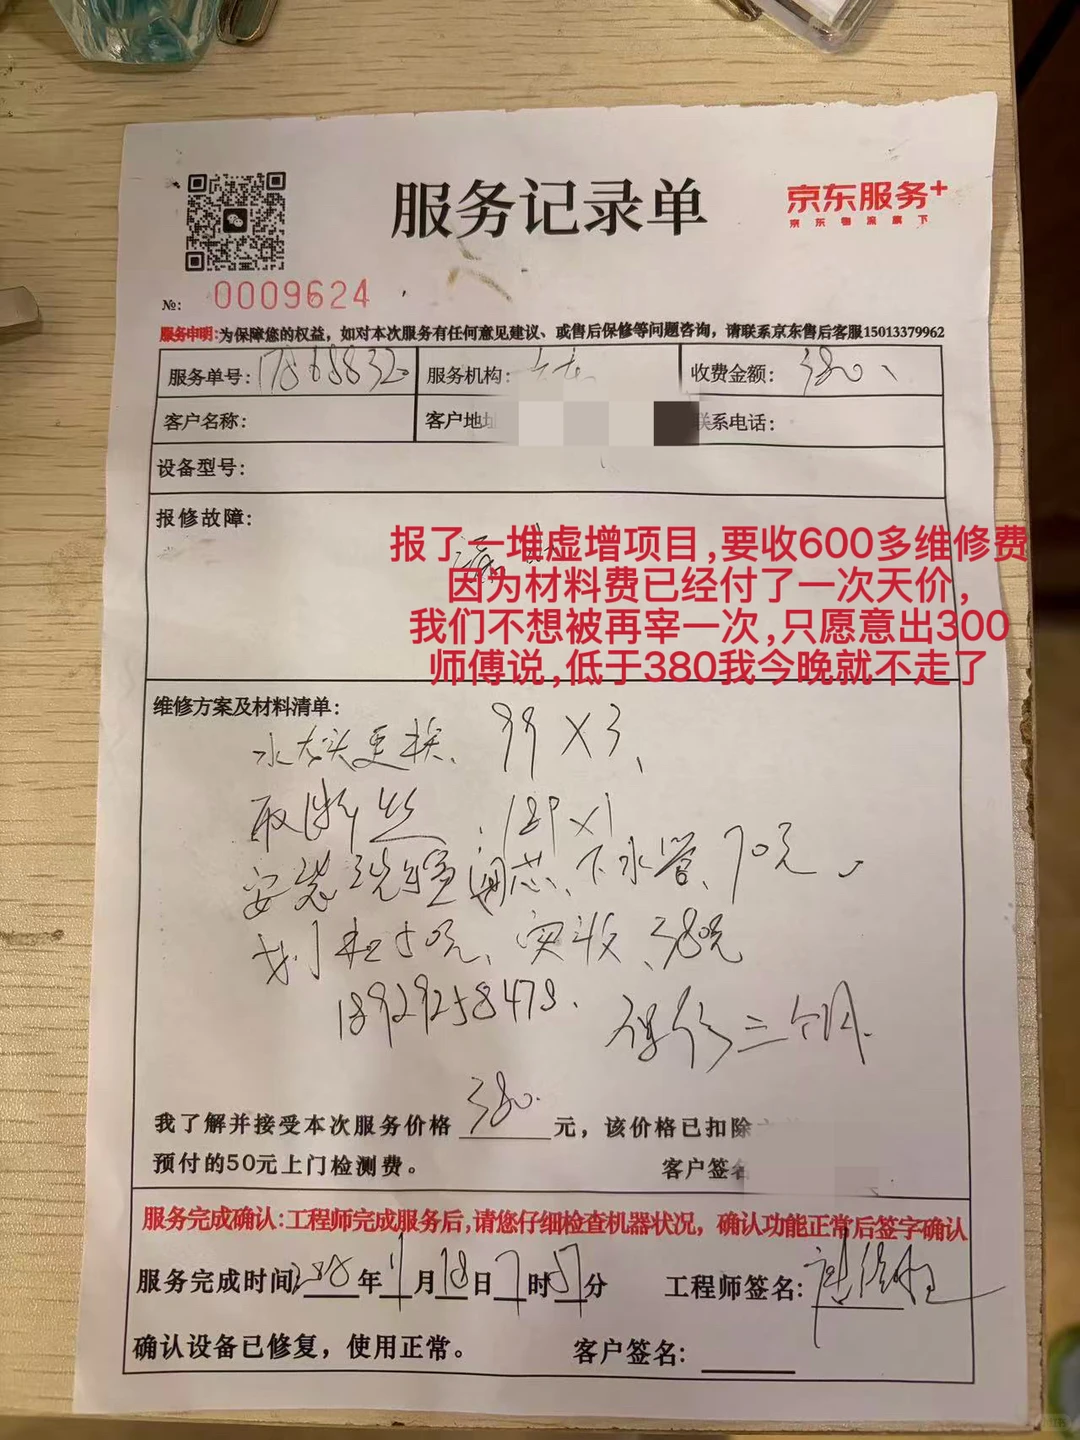 服务记录单
京东服务+
京东物流旗下
№: 0009624
服务申明:为保障您的权益，如对本次服务有任何意见建议、或售后保修等问题咨询，请联系京东售后客服15013379962
服务单号:
服务机构:
收费金额: 380、
客户名称:
客户地址
联系电话:
设备型号:
报修故障:
报了一堆虚增项目,要收600多维修费
因为材料费已经付了一次天价,
我们不想被再宰一次,只愿意出300
师傅说,低于380我今晚就不走了
维修方案及材料清单:
水龙头更换、99×3、
取断丝、129×1
安装洗脸盆、下水管、70元
实收、380元
18929258478.
保修三个月.
我了解并接受本次服务价格 380. 元，该价格已扣除
预付的50元上门检测费。
客户签名
服务完成确认:工程师完成服务后,请您仔细检查机器状况，确认功能正常后签字确认
服务完成时间 年 月18日7时57分
工程师签名:
确认设备已修复，使用正常。
客户签名: